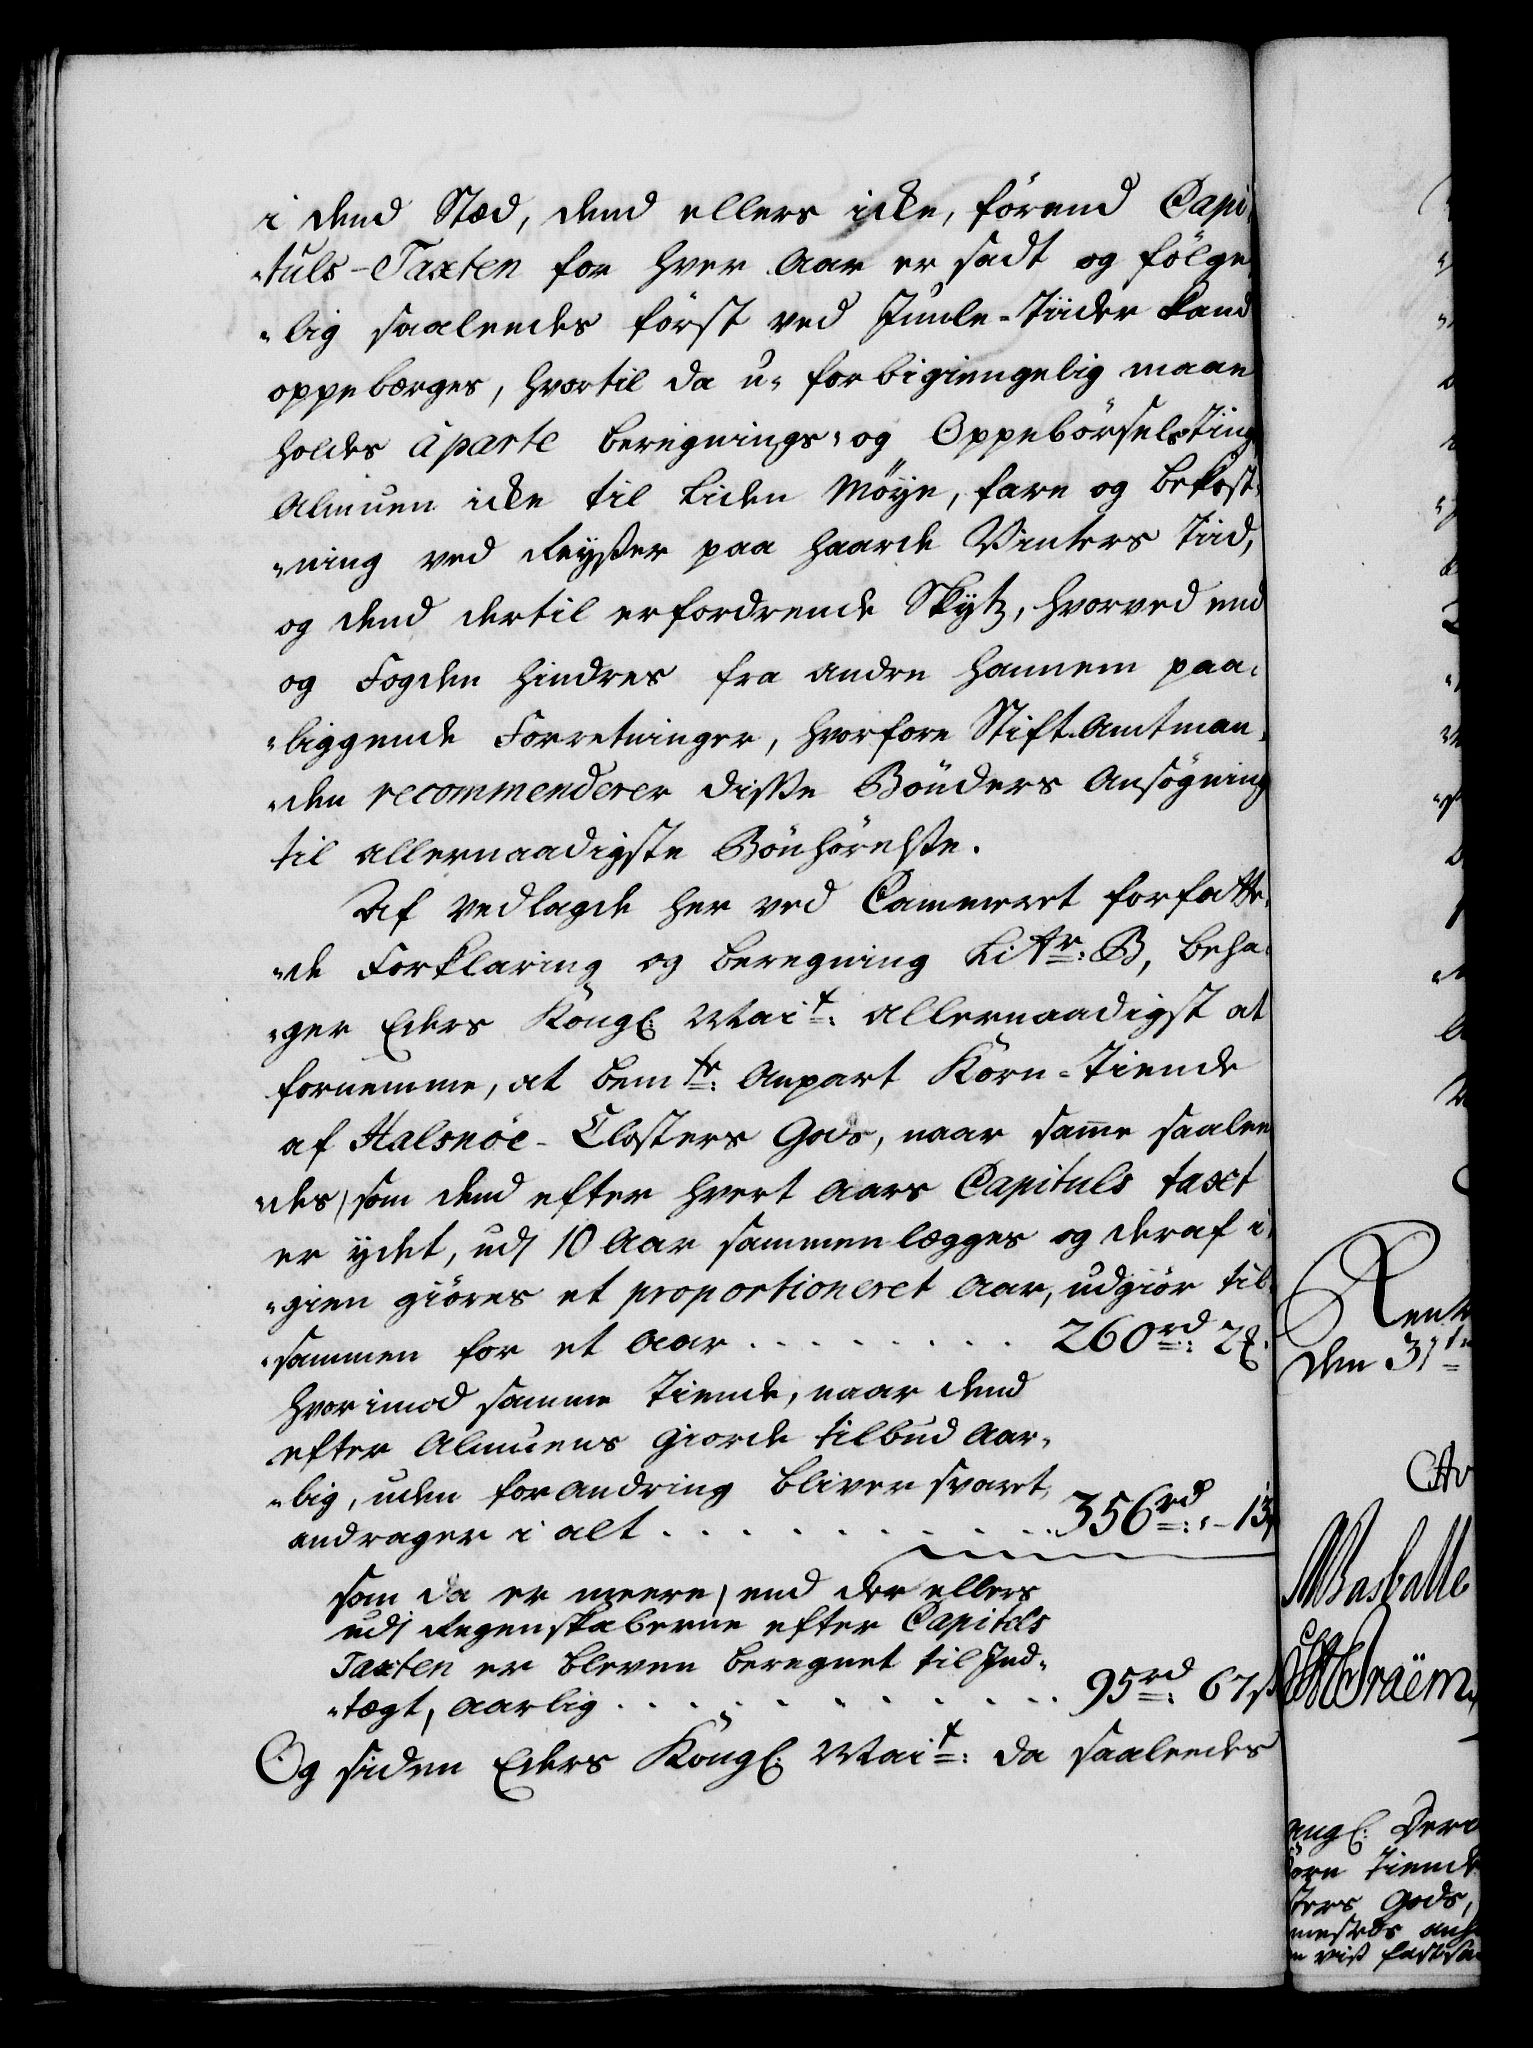 i dend Stæd, dend ellers icke, förend Capi-
-tuls-Taxten for hver Aar er sadt og fölge-
-lig saaleedes först ved Juule-Tiider kand
oppebærges, hvortil da u-forbigiengelig maae
holdes àparte beregnings- og Oppebörsels Ting
Almuen icke til Liden Möÿe, fare og bekost-
-ning ved Reÿsser paa haarde Vinters Tiid,
og dend dertil erfordrende Skytz, hvorved end
og Fogden hindres fra andre hannem paa-
-liggende Forretninger, hvorfore Stift-Amtman-
-den recommenderer disse Bönders Ansögning
til allernaadigste Bönhörelsse.
Af vedlagde her ved Cammeret forfatte-
-de Forklaring og beregning Litr: B, beha-
-ger Eders Kongl: Mait: allernaadigst at
fornemme, at bemte: Anpart Korn-Tiende
af Halsnöe-Closters Gods, naar samme saalee-
-des, som dend efter hvert Aars Capituls taxt
er ydet, udi 10 Aar sammenlægges og deraf i-
-gien giöres et proportioneret Aar, udgiör til-
-sammen for et Aar . . . . . . . . . 260rd: 2ß.
hvorimod samme Tiende, naar dend
efter Almuens giorde tilbud Aar-
-lig, uden forandring bliver svaret,
andrager i alt . . . . . . . . . . 356rd: „ - 13
som da er meere, end der ellers
udi Regenskaberne efter Capitels
Taxten er bleven beregnet til Ind-
-tægt, aarlig . . . . . . . . . . 95rd: 67ß
Og siden Eders Kongl: Mait: da saaleedes
Rent
den 31te
MBasballe
Fræm
ongl: Der
orn Tiende
sters Gods,